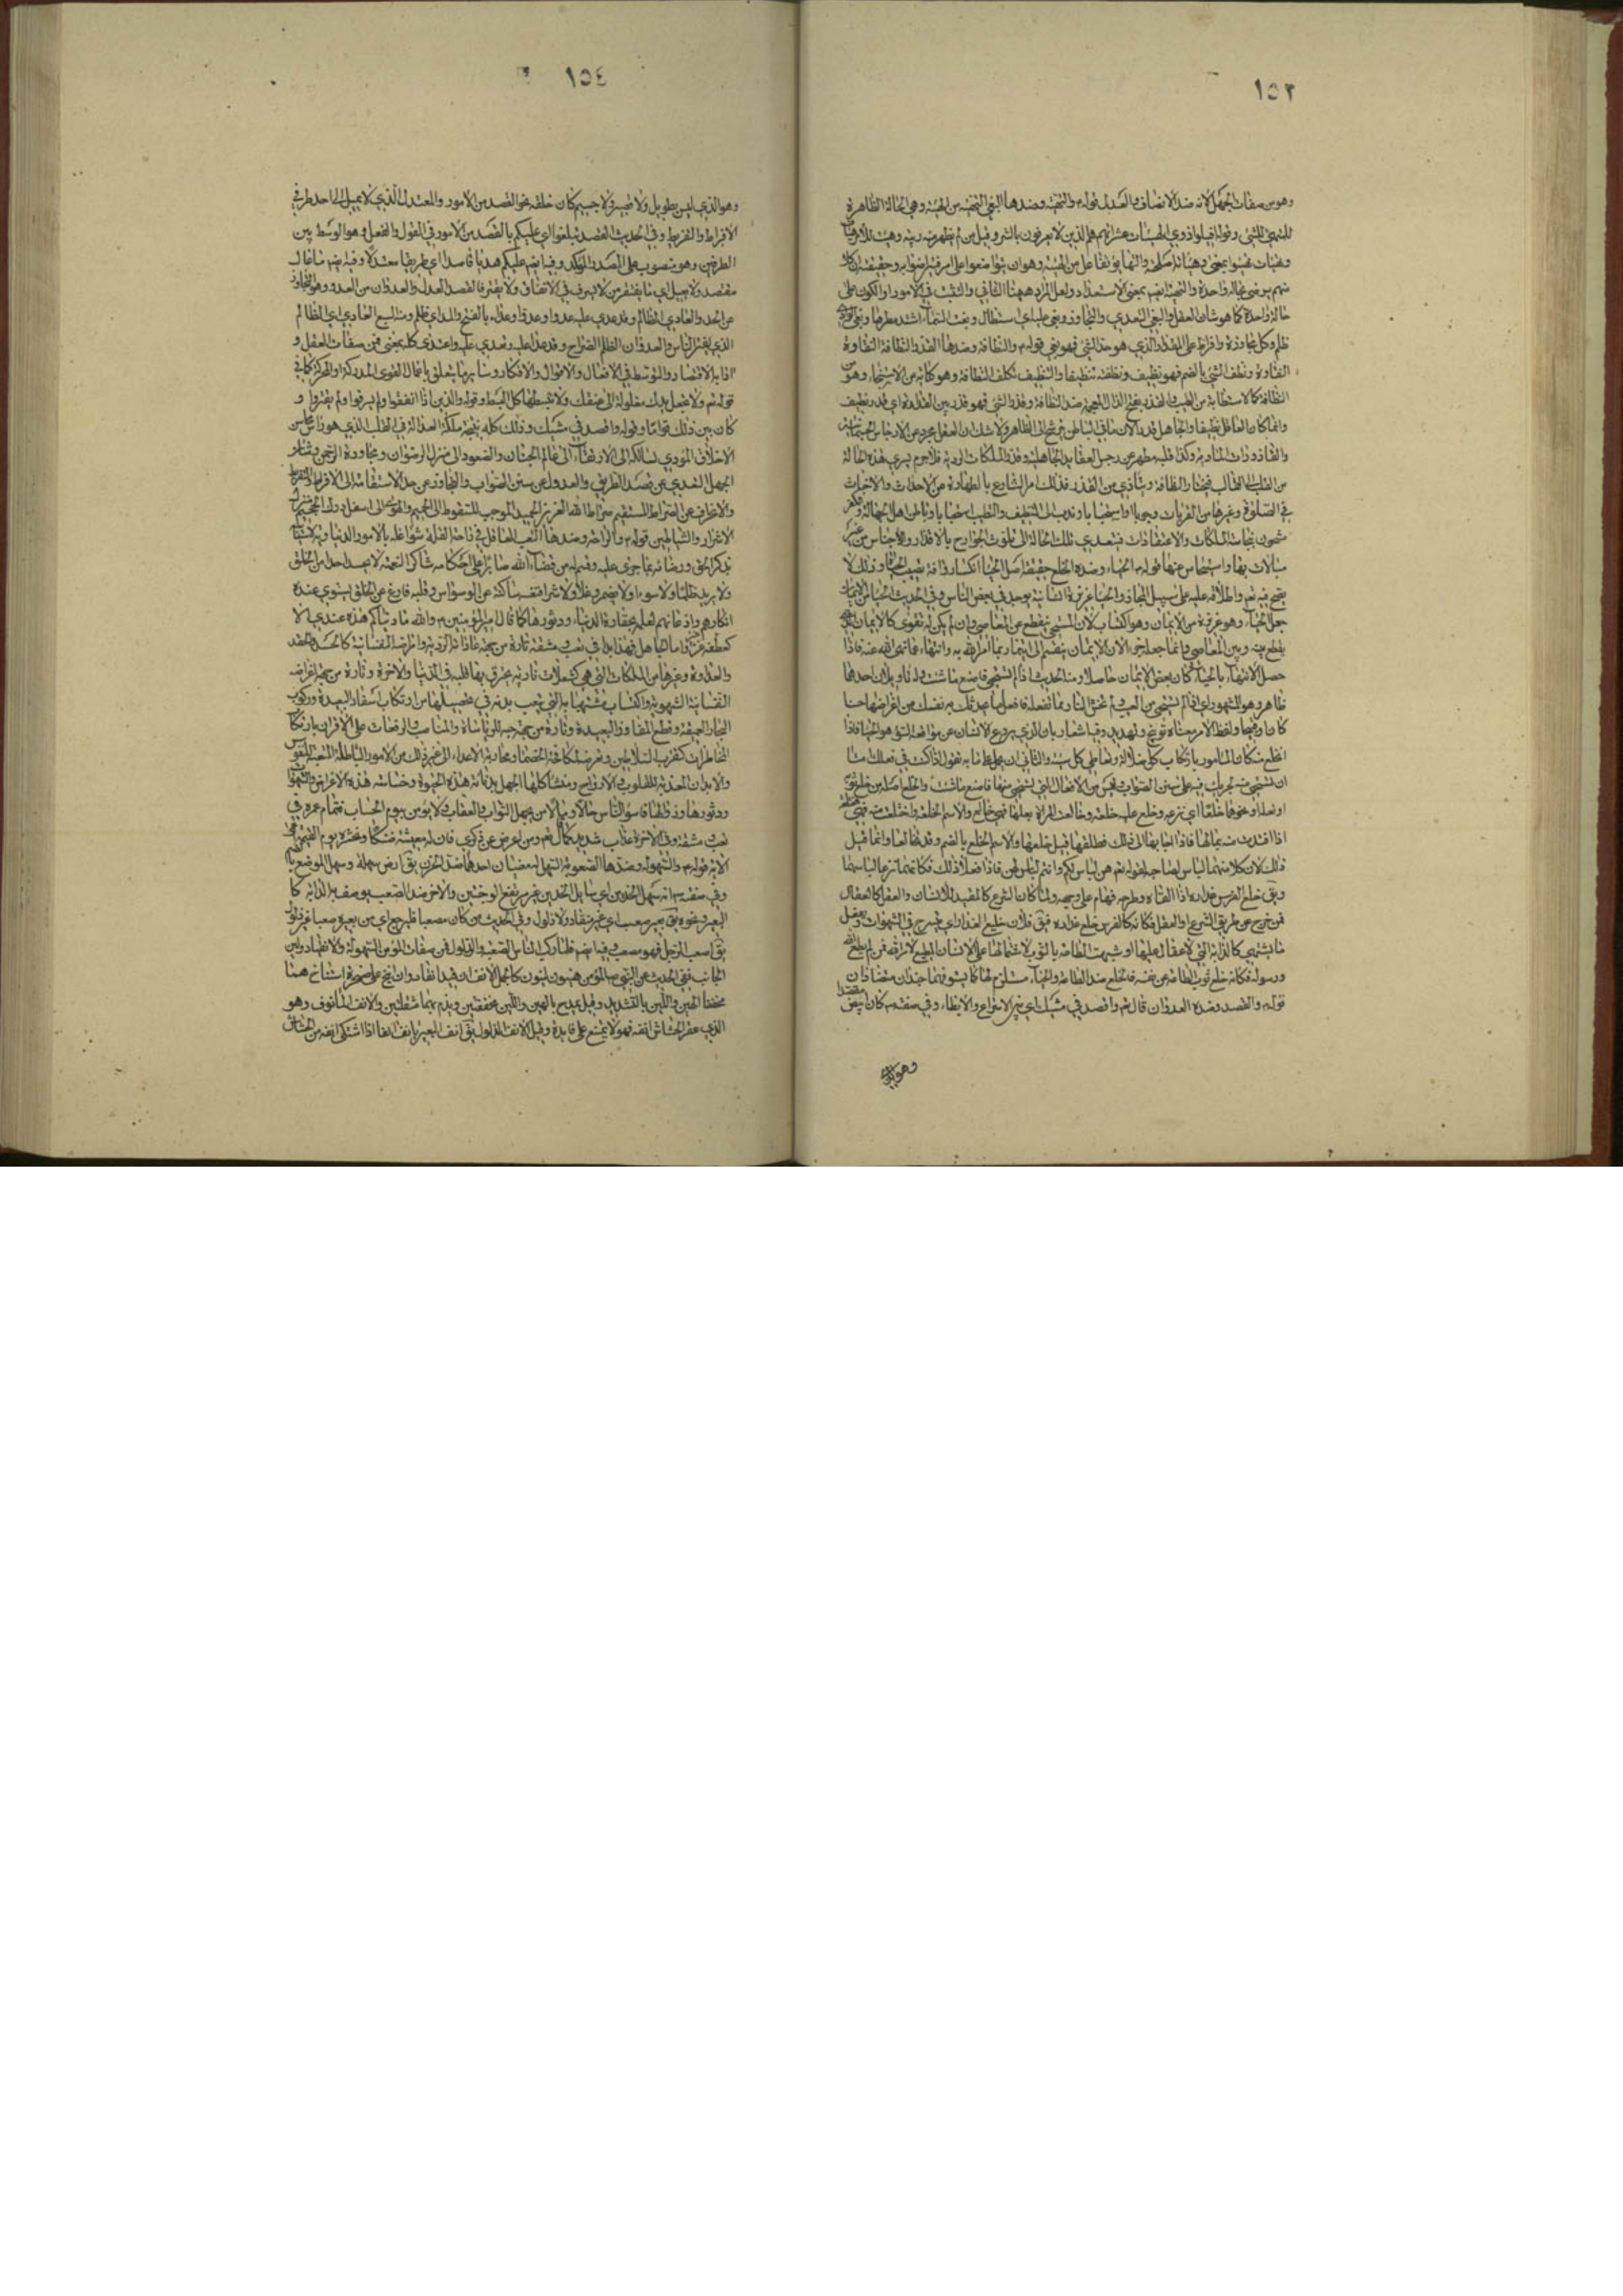 ١٥٣
وهو من صفات الجهل لانه ضد الانصاف والعدل قوله والتهيئة وضدها البغي التهيئة من الهيئة وهي الحالة الظاهرة
للمتهيئ للشيء وقوله اقيلوا ذوي الهيئات عثراتهم هم الذين لا يعرفون بالشر وقيل من لم يظهر منه ريبة
منهم يرضى بحالة واحدة والتهيئة ايضا بمعنى الاستعداد ولعل المراد ههنا التأني والتثبت في الامور او الكون على
حالة واحدة كما هو شأن العقل والبغي التعدي والتجاوز وبغى عليه اي استطال وبغت السماء اشتد مطرها
ظلم وكل مجاوزة وافراط على المقدار الذي هو حد الشيء فهو بغي قوله والنظافة وضدها القذر النظافة النقاوة
النقاوة ونظف الشيء بالضم فهو نظيف ونظفته تنظيفا والتنظيف تكلف النظافة وهو كناية من الاستنجاء وهو من
النظافة كالاستطابة من الطيب والقذر بفتح الذال المعجمة ضد النظافة وقذر الشيء فهو قذر بين القذارة
وانما كان العاقل نظيفا والجاهل قذرا لان ما في الباطن يترشح الى الظاهر ولا شك ان العقل مجرد عن الارجاس
من القلب الى القالب فيختار النظافة ويتأذي من القذر فلذلك امر الشارع بالطهارة من الاحداث والاخباث
في الصلوة وغيرها من القربات وجوبا او استحبابا وندب الى التنظيف والتطيب استحبابا وباطن اهل الجهالة
مشحون بنجاسة الملكات والاعتقادات فيتعدي تلك الحالة الى تلوث الجوارح بالاقذار والاجناس من غير
مبالات بها واستيحاش عنها قوله والحياء وضده الخلع حقيقة اصل الحياء انكسار وآفة يصيب الحيوة وذلك لا
يصح فيه تع واطلاقه عليه على سبيل المجاز والحياء غريزة انسانية يوجد في بعض الناس وفي الحديث الحياء من الايمان
جعل الحياء وهو غريزة من الايمان وهو اكتساب لان المستحيي ينقطع عن المعاصي وان لم يكن له تقوى كالايمان الذي
يقطع بينه وبين المعاصي وانما جعله جزء لان الايمان ينقسم الى ايتمار بما امر الله به وانتهاء عما نهى الله عنه فاذا
حصل الانتهاء بالحياء كان بعض الايمان حاصلا ومنه الحديث اذا لم تستحي فاصنع ما شئت وله تأويلان احدهما
ظاهر وهو المشهور اي اذا لم تستحي من العيب ولم تخش العار مما تفعله فافعل ما تحدثك به نفسك من اغراضها حسنا
كان او قبيحا ولفظ الامر معناه توبيخ وتهديد وفيه اشعار بان الذي يردع الانسان عن مواقعة السوء هو الحياء فاذا
انخلع منه كان كالمأمور بارتكاب كل ضلالة وتعاطي كل سيئة والثاني ان يحمل على بابه
اذا افتدت منه بمالها فاذا اجابها الى ذلك فطلقها قيل خلعها والاسم الخلع بالضم وقد تخالعا وانما قيل
ذلك لان كلا منهما لباس لصاحبه لقوله تع هن لباس لكم وانتم لباس لهن فاذا فعلا ذلك فكأنهما نزعا لباسهما
فمن خرج عن طريق الشرع او العقل فكأنه كالفرس خلع عذاره فيق فلان خليع العذار اي يسرح في الشهوات
ورسوله فكانه خلع ثوب الطاعة عن نفسه فالخلع ضد الطاعة والحياء مستلزم لها
قوله والقصد وضده العدوان قال تع واقصد في مشيك اي بين الاسراع والابطاء وفي صفته كان مقتصدا
وهو الذي
١٥٤
وهو الذي ليس بطويل ولا قصير ولا جسيم كان خلقه نحو القصد من الامور والمعتدل الذي لا يميل الى احد طرفي
الافراط والتفريط وفي الحديث القصد القصد تبلغوا اي عليكم بالقصد من الامور في القول والفعل وهو الوسط بين
الطرفين وهو منصوب على المصدر المؤكد وفيه ايضا عليكم هديا قاصدا اي طريقا معتدلا وفيه ايضا ما عال
مقتصد ولا يعيل اي ما يفتقر من لا يسرف في الانفاق ولا يقتر فالقصد العدل والعدوان من العدو وهو التجاوز
عن الحد والعادي الظالم وقد عدي عليه عدوا وعدوا وعداء بالفتح والمد اي ظلم ومنه السبع العادي اي الظالم
الذي يفترس الناس والعدوان الظلم الصراح وقد عدا عليه وتعدي عليه واعتدى كله بمعنى فمن صفات العقل و
قوله تع ولا تجعل يدك مغلولة الى عنقك ولا تبسطها كل البسط وقوله والذين اذا انفقوا لم يسرفوا ولم يقتروا و
كان بين ذلك قواما وقوله واقصد في مشيك وذلك كله نتيجة ملكة العدالة في القلب الذي هو رأس محاسن
الاخلاق المؤدي لسالكه الى الارتقاء الى عالم الجنان والصعود الى منزل الرضوان ومجاورة الرحمن
الجهل التعدي عن قصد الطريق والعدول عن سنن الصواب والتجاوز عن حد الاستقامة الى الافراط والتفريط
والانحراف عن الصراط المستقيم صراط الله العزيز الحميد الموجب للسقوط الى الجحيم والهوى الى اسفل درك الجحيم
الاشرار والشياطين قوله والراحة وضدها التعب العاقل في راحة لقلة شواغله بالامور الدنياوية
بذكر الحق ورضائه بما جرى عليه وقسم له من قضاء الله صابرا على احكامه شاكرا لنعمه لا يحسد احدا من الخلق
ولا يريد ظلما ولا سوء ولا يضمر غلا ولا شرا فنفسه ساكنة عن الوسواس وقلبه فارغ عن الخلق يستوي عنده
انكارهم واذعانهم لعلمه بحقارة الدنيا ودثورها كما قال امير المؤمنين والله ما دنياكم هذه عندي الا
كعطفة عنز واما الجاهل فهو ابدا في تعب ومشقة تارة من جهة عاداته الردية وامراضه النفسانية كالحسد والحقد
والعداوة وغيرها من الملكات التي هي كشعلات نارية يحترق بها قلبه في الدنيا والآخرة وتارة من جهة اغراضه
النفسانية الشهوية واكتساب مشتهياته التي يتعب بدنه في تحصيلها من ارتكاب اسفار البعيدة وركوب
البحار العميقة وقطع المفاوز البعيدة وتارة من جهة حبه للرياسات والمناصب والترفعات على الاقران بارتكاب
المخاطرات كتقرب السلاطين وتعرضه لمكافحة الخصماء ومحاربة الاعداء الى غير ذلك من الامور الباطلة المتعبة للنفوس
والابدان المعذبة للقلوب والارواح ومنشأ كلها الجهل بدناءة هذه الحيوة وخساسة هذه الاغراض والشهوات
ودثورها وزوالها فاسوأ الناس حالا ومآلا من يجهل الثواب والعقاب ولا يؤمن بيوم الحساب فتمام عمره في
تعب ومشقة وفي الآخرة عذاب شديد كما قال تع ومن اعرض عن ذكري فان له معيشة ضنكا ونحشره يوم القيمة اعمى
الآية قوله والسهولة وضدها الصعوبة السهل لمعنيان احدهما ضد الحزن يق ارض سهلة وسهل الموضع
وفي صفته انه سهل الخدين اي سايل الخدين غير مرتفع الوجنتين والآخر ضد الصعب يوصف به الدابة كا
البعير ونحوه يق بعير صعب اي غير منقاد ولا ذلول وفي الحديث من كان مصعبا فليرجع اي من بعيره صعبا غير ذلول
يق اصعب الرجل فهو مصعب وفيه ايضا فلما ركب الناس الصعبة والذلول فمن صفات المؤمن السهولة والانقياد ولين
الجانب ففي الحديث عن النبي صلى المؤمن هينون لينون كالجمل الانف ان قيد انقاد وان انيخ على صخرة استناخ هما
مخففا الهين واللين بالتشديد وقيل يمدح بالهين واللين مخففتين ويذم بهما مثقلتين والانف المأنوف وهو
الذي عقر الخشاش انفه فهو لا يمتنع على قايده وقيل الانف الذلول يق انف البعير يأنف انفا اذا اشتكى انفه من الخشاش